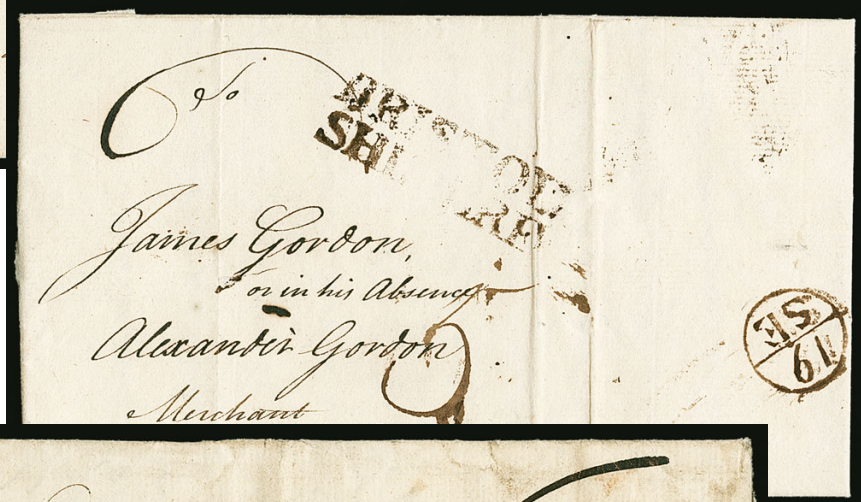 To
BRISTOL
SHIP LRE
James Gordon,
or in his Absence
Alexander Gordon
Merchant
SE
19